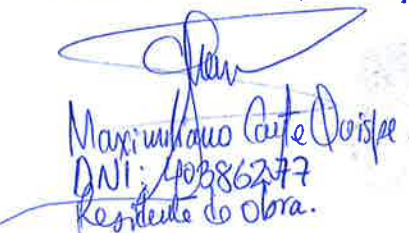 Maximiliano Ccate Quispe
DNI: 40386277
Residente de Obra.